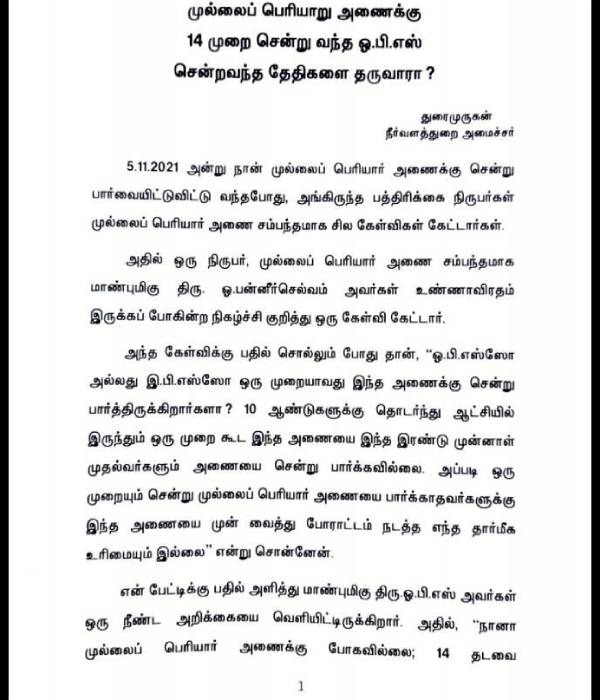 முல்லைப் பெரியாறு அணைக்கு
14 முறை சென்று வந்த ஓ.பி.எஸ்
சென்றவந்த தேதிகளை தருவாரா ?
துரைமுருகன்
நீர்வளத்துறை அமைச்சர்
5.11.2021 அன்று நான் முல்லைப் பெரியார் அணைக்கு சென்று
பார்வையிட்டுவிட்டு வந்தபோது, அங்கிருந்த பத்திரிக்கை நிருபர்கள்
முல்லைப் பெரியார் அணை சம்பந்தமாக சில கேள்விகள் கேட்டார்கள்.
அதில் ஒரு நிருபர், முல்லைப் பெரியார் அணை சம்பந்தமாக
மாண்புமிகு திரு. ஓ.பன்னீர்செல்வம் அவர்கள் உண்ணாவிரதம்
இருக்கப் போகின்ற நிகழ்ச்சி குறித்து ஒரு கேள்வி கேட்டார்.
அந்த கேள்விக்கு பதில் சொல்லும் போது தான், “ஓ.பி.எஸ்ஸோ
அல்லது இ.பி.எஸ்ஸோ ஒரு முறையாவது இந்த அணைக்கு சென்று
பார்த்திருக்கிறார்களா? 10 ஆண்டுகளுக்கு தொடர்ந்து ஆட்சியில்
இருந்தும் ஒரு முறை கூட இந்த அணையை இந்த இரண்டு முன்னாள்
முதல்வர்களும் அணையை சென்று பார்க்கவில்லை. அப்படி ஒரு
முறையும் சென்று முல்லைப் பெரியார் அணையை பார்க்காதவர்களுக்கு
இந்த அணையை முன் வைத்து போராட்டம் நடத்த எந்த தார்மீக
உரிமையும் இல்லை” என்று சொன்னேன்.
என் பேட்டிக்கு பதில் அளித்து மாண்புமிகு திரு.ஓ.பி.எஸ் அவர்கள்
ஒரு நீண்ட அறிக்கையை வெளியிட்டிருக்கிறார். அதில், “நானா
முல்லைப் பெரியார் அணைக்கு போகவில்லை; 14 தடவை
1